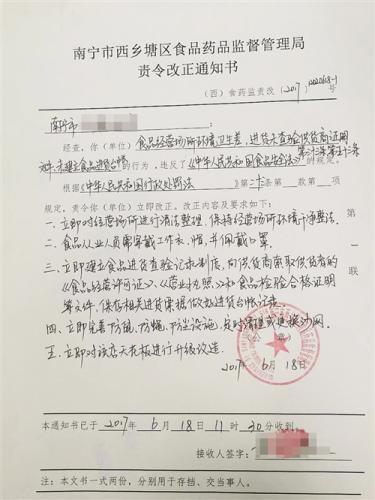 南宁市西乡塘区食品药品监督管理局
责令改正通知书
（西）食药监责改（2017）
南宁市
经查，你（单位）食品经营场所环境卫生差，进货未查验供货商证明
文件，未建立食品进货台账的行为，违反了《中华人民共和国食品安全法》第三十三条、第五十三条的规定。
根据《中华人民共和国行政处罚法》第二十三条第 款第 项
规定，责令你（单位）立即改正。改正内容及要求如下：
一、立即对经营场所进行清洁整理，保持经营场所环境干净整洁。
二、食品从业人员需穿戴工作衣、帽，并佩戴口罩。
三、立即建立食品进货查验记录制度，向供货商索取供货商的
《食品经营许可证》、《营业执照》和食品检验合格证明
等文件，保存相关进货票据做好进货台帐记录。
四、立即完善防鼠、防蝇、防尘设施，及时清理或更换纱网。
五、立即对该店天花板进行升级改造。
第一联
（公章）
2017年6月18日
本通知书已于 2017年 6月 18日 11时 30分收到。
接收人签字：
注：本文书一式两份，分别用于存档、交当事人。